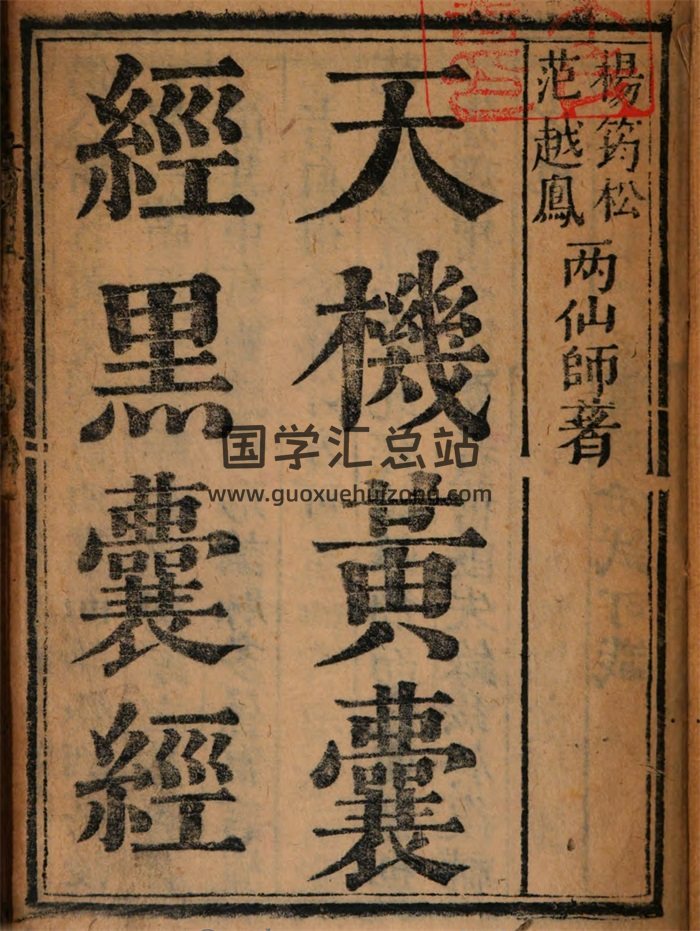 楊筠松
范越鳳
两仙師著
天機黃囊
經黑囊經
国学汇总站
www.guoxuehuizong.com